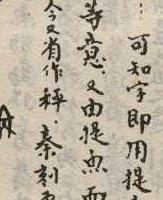 可知字即用提
等意又由提魚而
今又省作秤秦刻